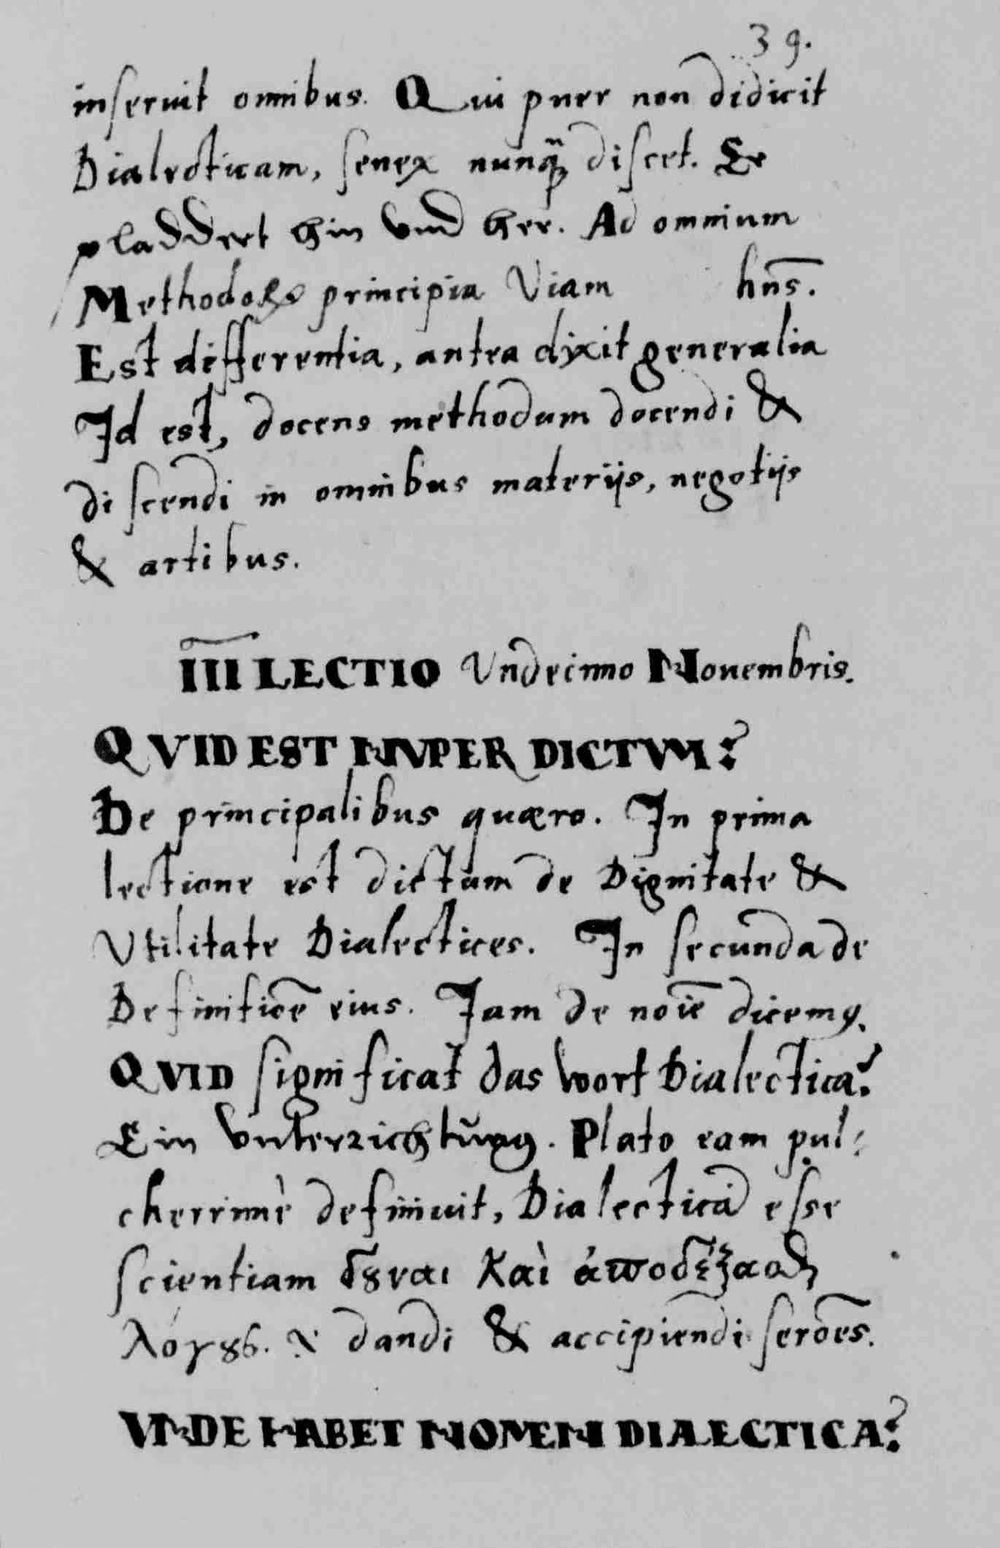 39.
inseruit omnibus. Qui puer non didicit
Dialecticam, senex nunq̃ꝫ discet. Er
pladdert hin vnd her. Ad omnium
Methodoꝝ principia Viam hn̄s.
Est differentia, antea dixit generalia
Id est, docens methodum docendi &
discendi in omnibus materijs, negotijs
& artibus.
III LECTIO Vndecimo Nouembris.
QVID EST NVPER DICTVM?
De principalibus quæro. In prima
lectione est dictum de Dignitate &
Vtilitate Dialectices. In secunda de
Definitiōe eius. Iam de noīe dicemꝰ.
QVID significat das wort Dialectica?
Ein vnterrichtung. Plato eam pul-
cherrimè definiuit, Dialecticā esse
scientiam δȣναι καὶ ἀποδέξασθαι
λόγȣς. dandi & accipiendi serōes.
VNDE HABET NOMEN DIALECTICA?